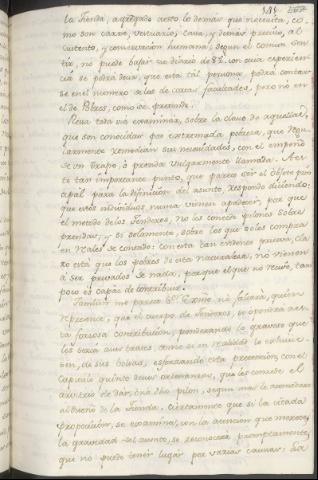 la Tienda, agregado a esto lo demás que necesita, co-
mo son carne, vestuario, casa, y demás preciso, al
sustento, y conservacion humana; segun el comun sen-
tir, no puede bajar su diario de 8 rs. con cuia experien-
cia se podrá decir, que esta tal persona, podrá contar-
se en el numero de los de cortas facultades, pero no en
el de Pobres, como se pretende.
Resta toda via examinar, sobre la clase de aquellos,
que son conocidos por extremada pobreza, que regu-
larmente remedian sus necesidades, con el empeño
de un trapo, ò prenda vulgarmente llamada. A es-
te tan importante punto, que parece ser el objeto prin-
cipal para la difinicion del asunto, respondo diciendo:
que estos individuos nunca vienen a padecer, por que
el metodo de los Tenderos, no les concede pilones sobre
prendas, y si solamente, sobre los que de los compra
en Reales de contado: con esta tan evidente prueva, cla-
ro está que los pobres de esta naturaleza, no vienen
à ser privados de nada, porque el que no recive, tam-
poco es capaz de contribuir.
Tambien me parece Sr. Exmo. no faltará, quien
represente, que el cuerpo de Tenderos, se opondrá a es-
ta forzosa contribucion, ponderando lo gravoso que
les sería
de sus bolsas, esforzando esta pretencion, con el
Capitulo quinto de sus ordenanzas, que les concede el
arvitrio de dar, ò no dar pilon, segun mas le acomodare
al dueño de la Tienda. Ciertamente que si la citada
proposicion, se examina, con la atencion que merece
la gravedad del asunto, se reconocerá promptamente,
que no puede tener lugar por varias causas; La